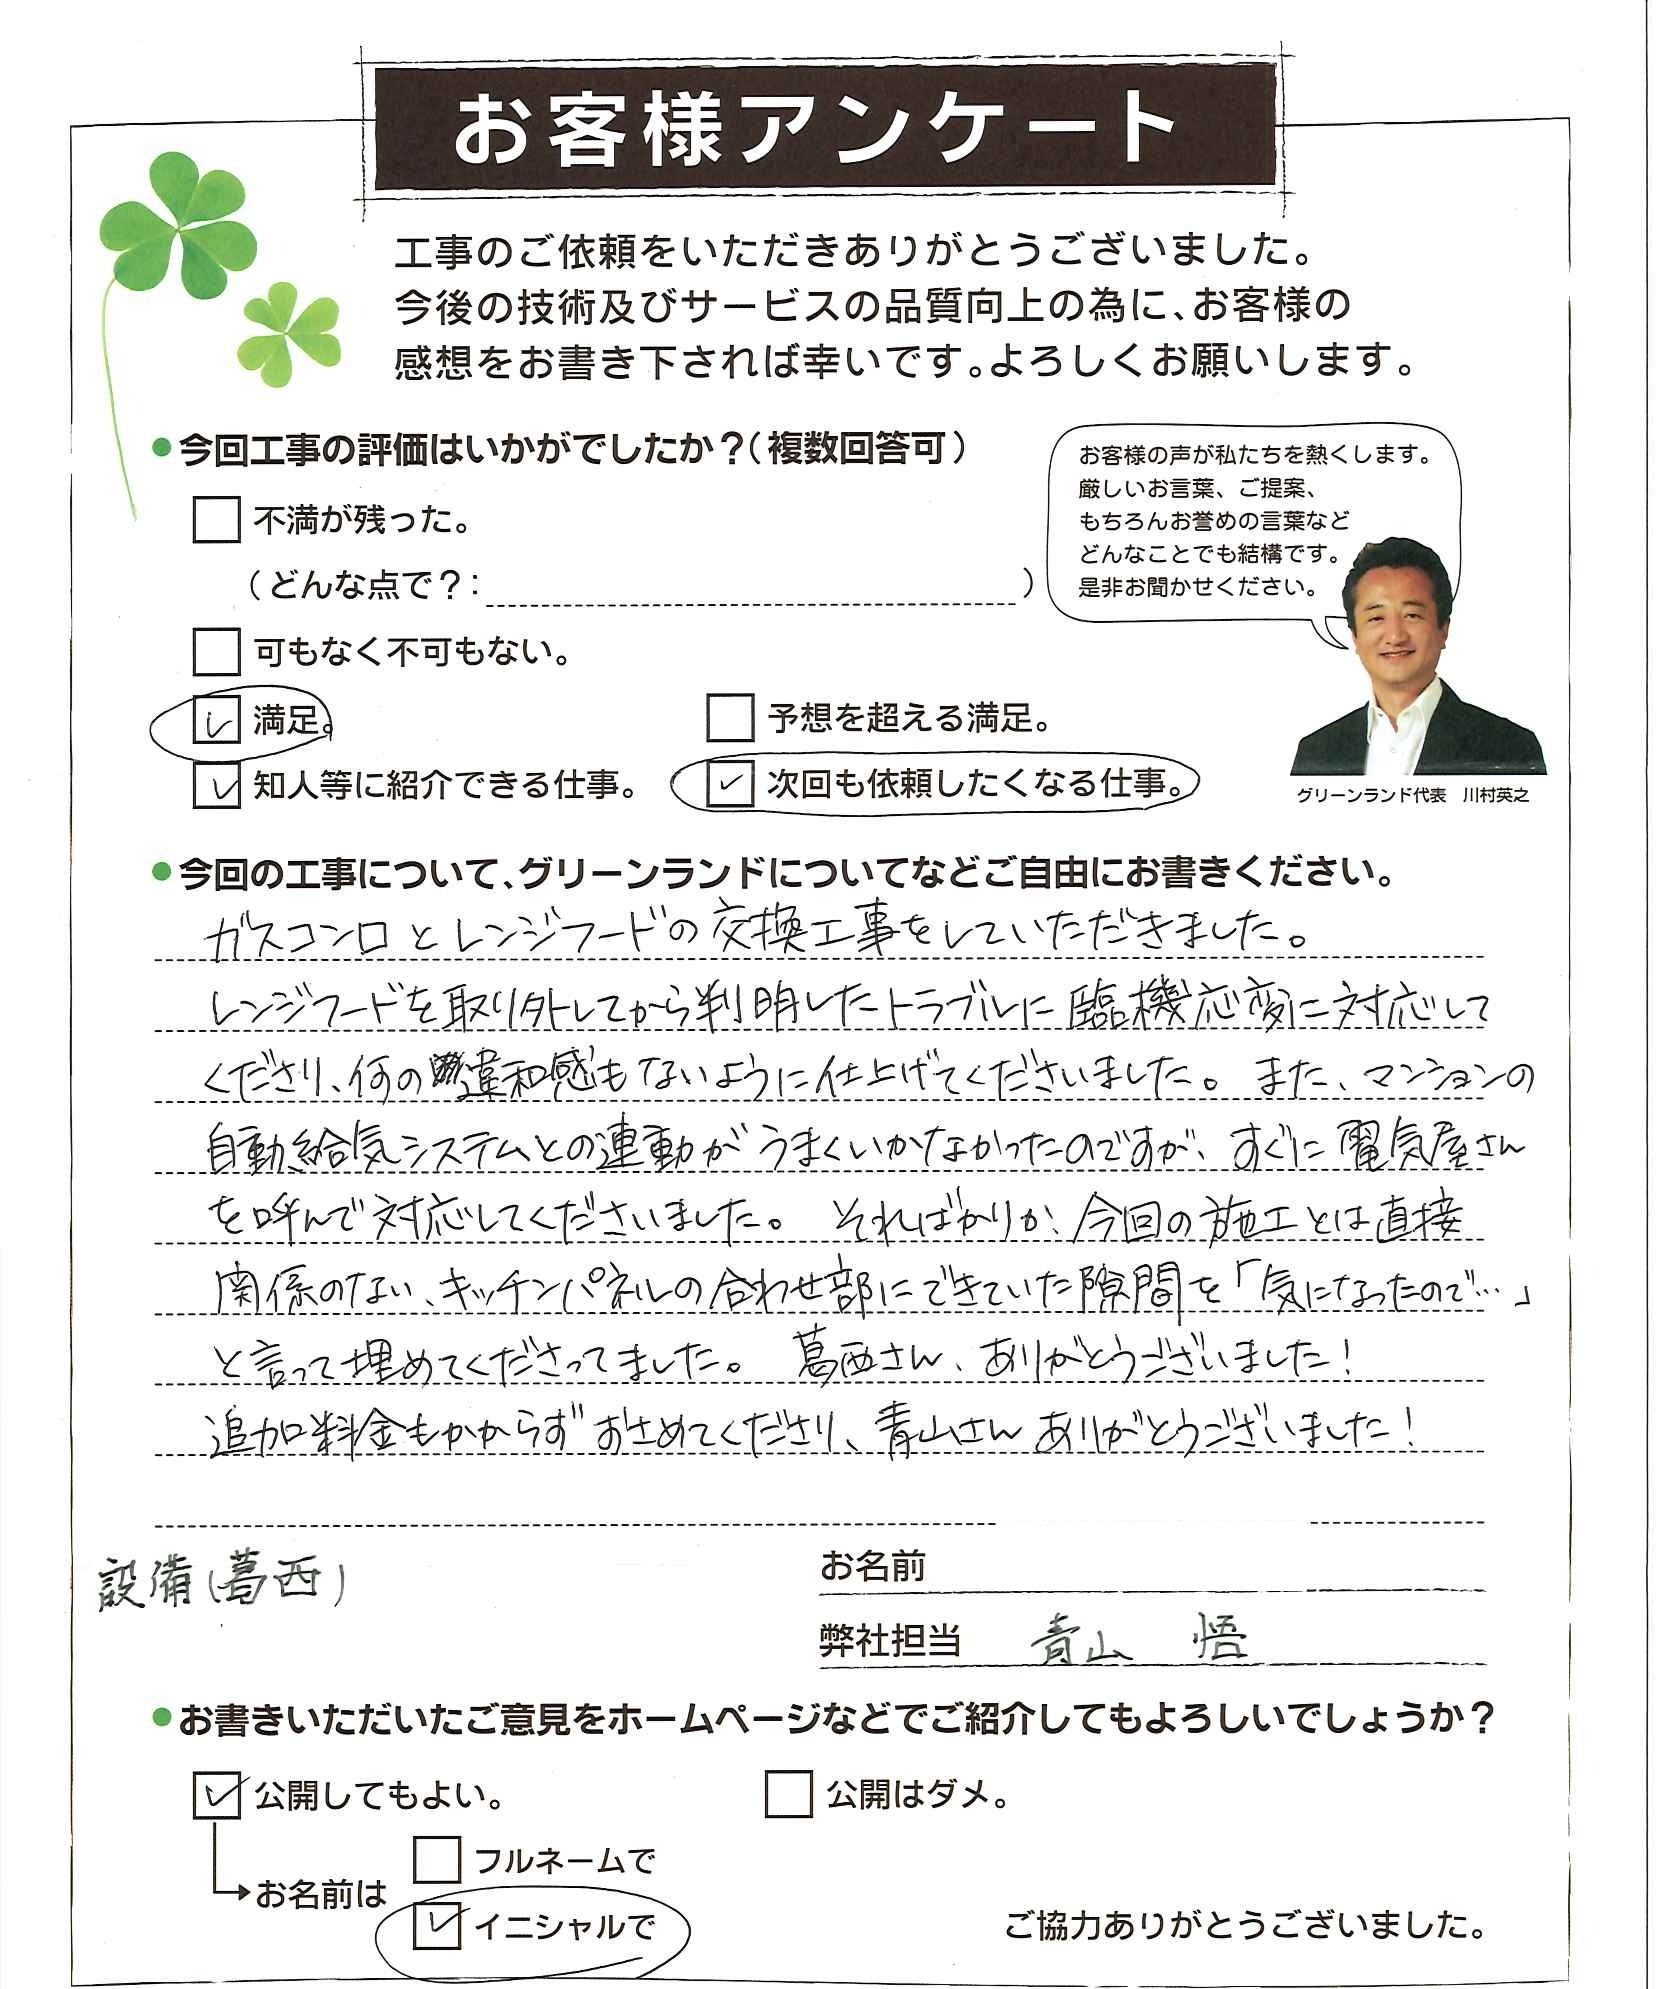 お客様アンケート
工事のご依頼をいただきありがとうございました。
今後の技術及びサービスの品質向上の為に、お客様の
感想をお書き下されば幸いです。よろしくお願いします。
●今回工事の評価はいかがでしたか？（複数回答可）
不満が残った。
（どんな点で？： ）
可もなく不可もない。
満足。
予想を超える満足。
知人等に紹介できる仕事。
次回も依頼したくなる仕事。
お客様の声が私たちを熱くします。
厳しいお言葉、ご提案、
もちろんお誉めの言葉など
どんなことでも結構です。
是非お聞かせください。
グリーンランド代表　川村英之
●今回の工事について、グリーンランドについてなどご自由にお書きください。
ガスコンロとレンジフードの交換工事をしていただきました。
レンジフードを取り外してから判明したトラブルに臨機応変に対応して
くださり、何の違和感もないように仕上げてくださいました。また、マンションの
自動給気システムとの連動がうまくいかなかったのですが、すぐに電気屋さん
を呼んで対応してくださいました。そればかりか、今回の施工とは直接
関係のない、キッチンパネルの合わせ部にできていた隙間を「気になったので…」
と言って埋めてくださってました。葛西さん、ありがとうございました！
追加料金もかからずおさめてくださり、青山さんありがとうございました！
設備（葛西）
お名前
弊社担当　青山　悟
●お書きいただいたご意見をホームページなどでご紹介してもよろしいでしょうか？
公開してもよい。
公開はダメ。
お名前は
フルネームで
イニシャルで
ご協力ありがとうございました。